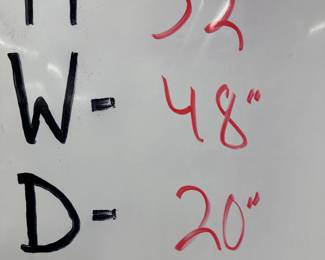 W- 48"
D- 20"